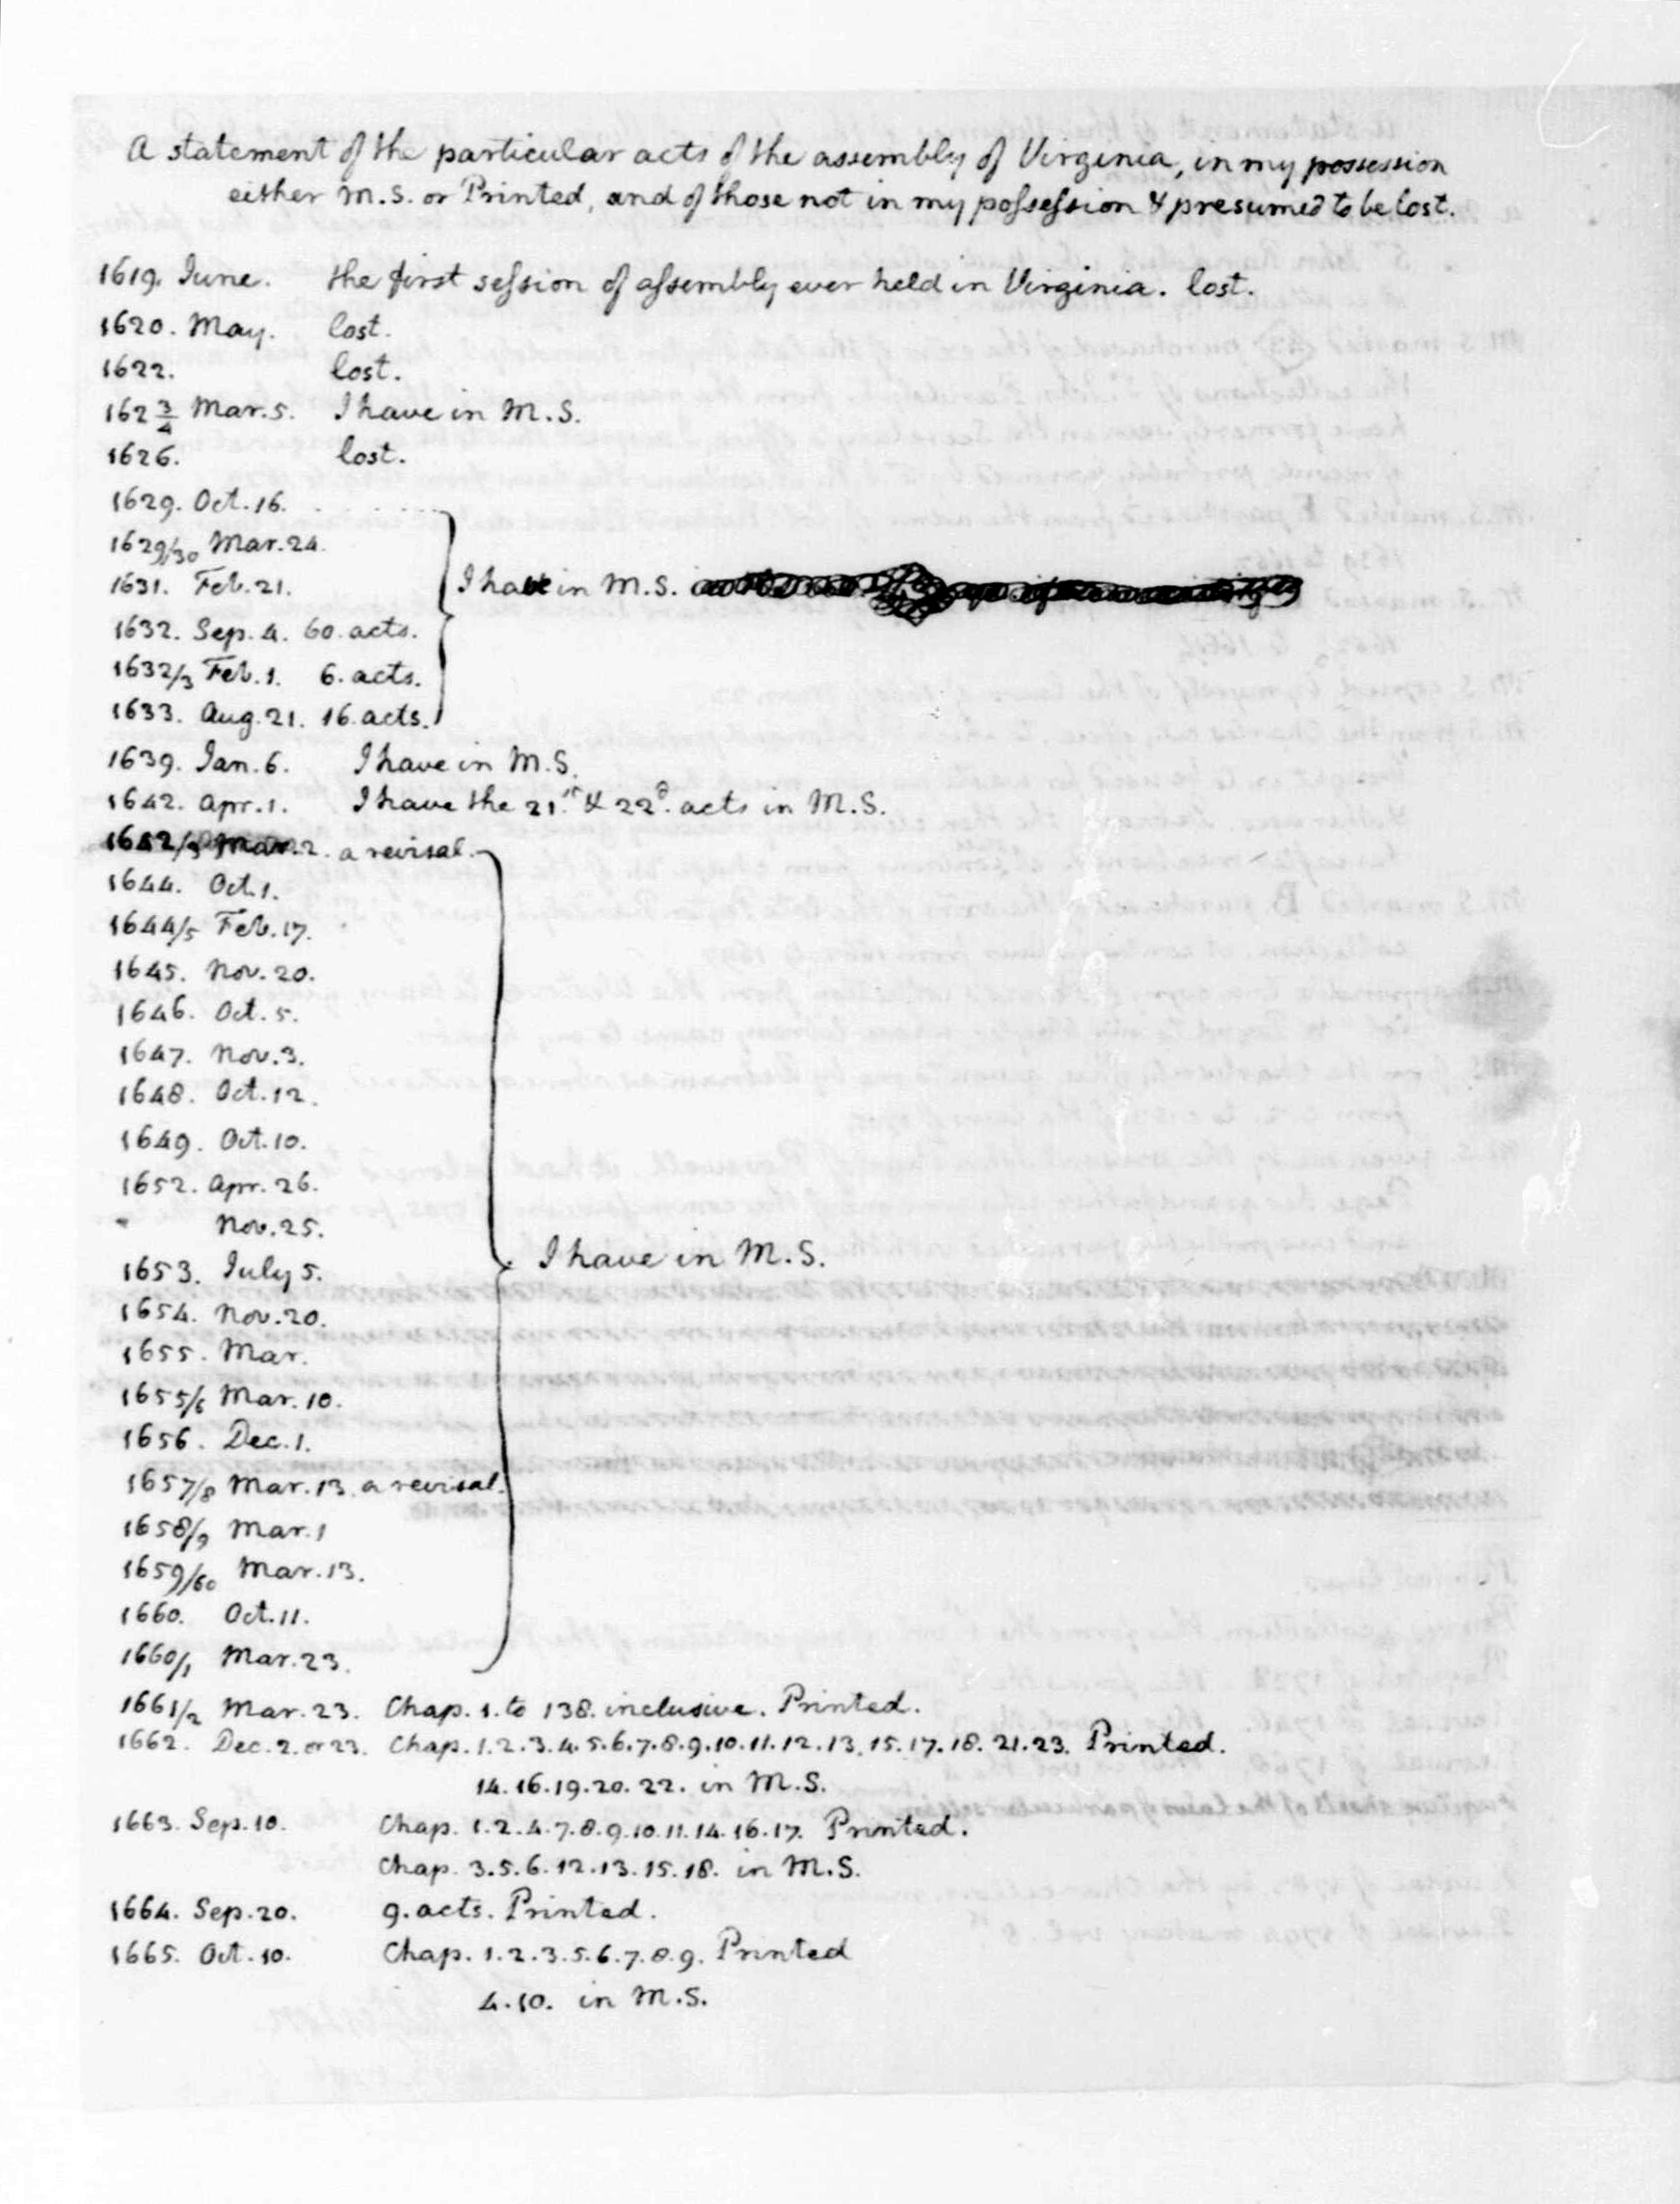 A statement of the particular acts of the assembly of Virginia, in my possession
either M.S. or Printed, and of those not in my possession & presumed to be lost.
1619. June. the first session of assembly ever held in Virginia. lost.
1620. May. lost.
1622. lost.
162 3/4 Mar. 5. I have in M.S.
1626. lost.
1629. Oct. 16.
1629/30 Mar. 24.
1631. Feb. 21.
I have in M.S.
1632. Sep. 4. 60. acts.
1632/3 Feb. 1. 6. acts.
1633. Aug. 21. 16. acts.
1639. Jan. 6. I have in M.S.
1642. Apr. 1. I have the 21st & 22d. acts in M.S.
1642/3 Mar. 2. a revisal.
1644. Oct. 1.
1644/5 Feb. 17.
1645. Nov. 20.
1646. Oct. 5.
1647. Nov. 3.
1648. Oct. 12.
1649. Oct. 10.
1652. Apr. 26.
Nov. 25.
1653. July 5.
I have in M.S.
1654. Nov. 20.
1655. Mar.
1655/6 Mar. 10.
1656. Dec. 1.
1657/8 Mar. 13. a revisal.
1658/9 Mar. 1
1659/60 Mar. 13.
1660. Oct. 11.
1660/1 Mar. 23.
1661/2 Mar. 23. Chap. 1. to 138. inclusive. Printed.
1662. Dec. 2. or 23. Chap. 1. 2. 3. 4. 5. 6. 7. 8. 9. 10. 11. 12. 13. 15. 17. 18. 21. 23. Printed.
14. 16. 19. 20. 22. in M.S.
1663. Sep. 10. Chap. 1. 2. 4. 7. 8. 9. 10. 11. 14. 16. 17. Printed.
Chap. 3. 5. 6. 12. 13. 15. 18. in M.S.
1664. Sep. 20. 9. acts. Printed.
1665. Oct. 10. Chap. 1. 2. 3. 5. 6. 7. 8. 9. Printed
4. 10. in M.S.